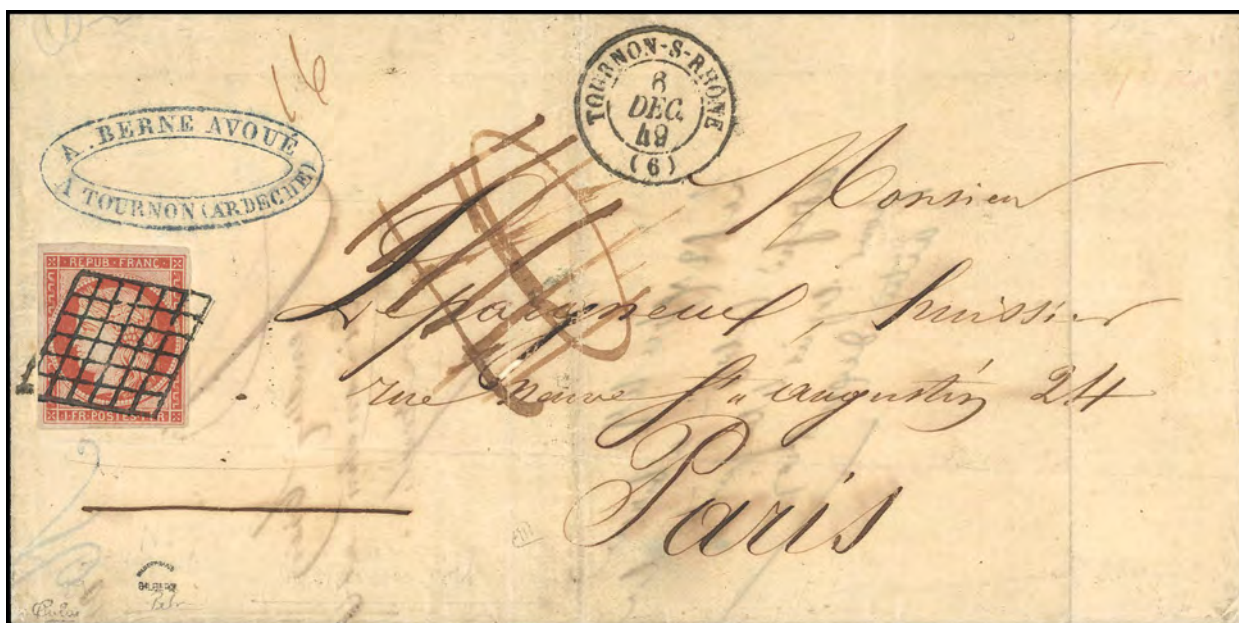 16
A. BERNE AVOUÉ
A TOURNON (ARDECHE)
TOURNON-S-RHÔNE
6
DEC.
49
(6)
REPUB·FRANC·
1·FR·POSTES·1·FR
Monsieur
Lepaigneul, huissier
rue neuve St. augustin 24
Paris